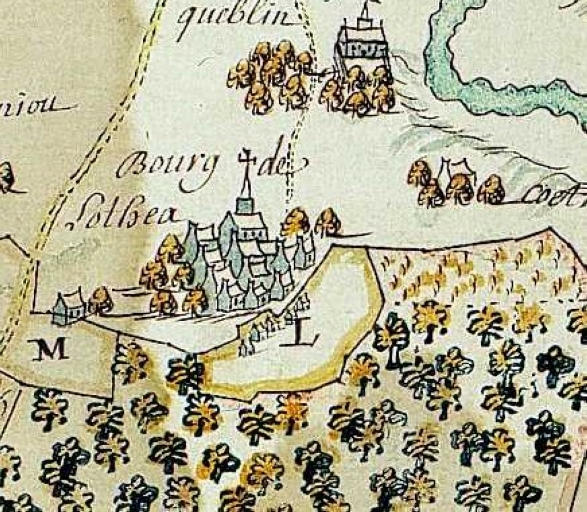 queblin
niou
Bourg de
Lothea
coët
L
M